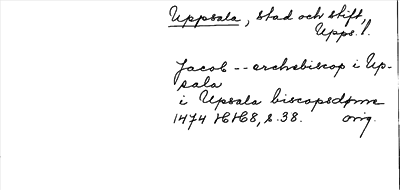 Uppsala, stad och stift,
Upps. l.
Jacob -- erchebiscop i Up-
sala
i Upsala biscopsdøme
1474 HH8, s. 38. orig.